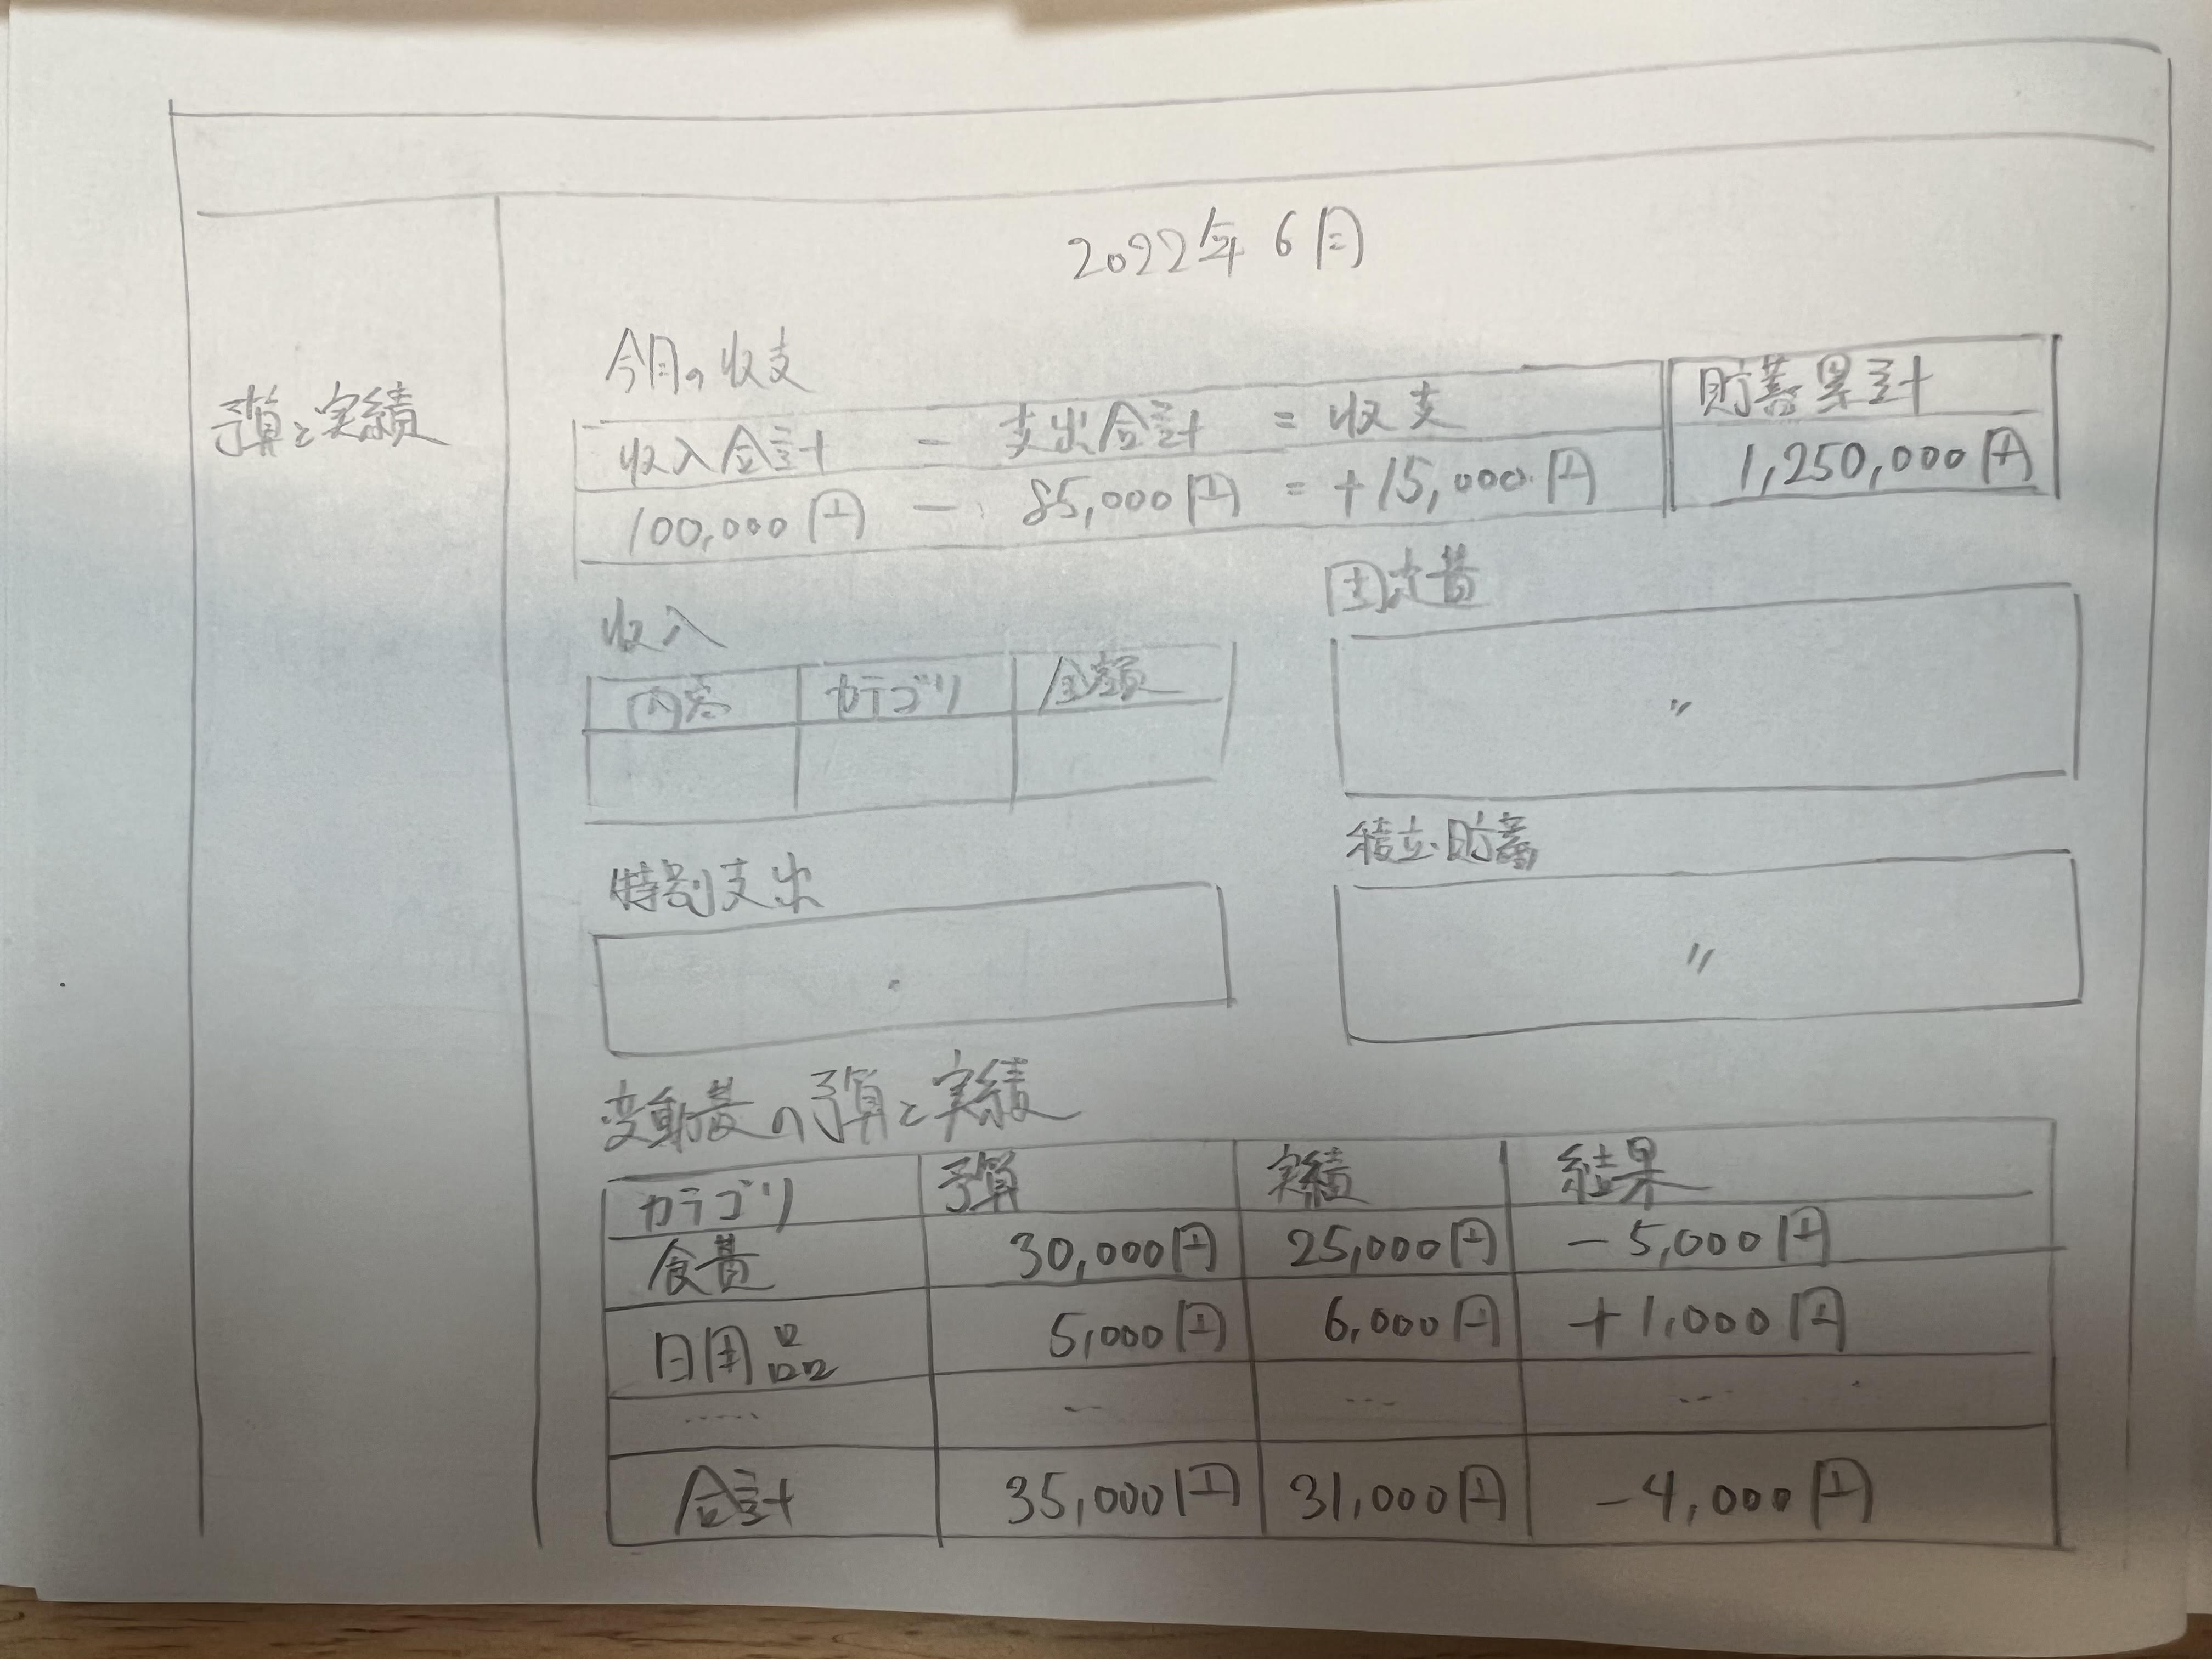 2022年6月
予算と実績
今月の収支
収入合計 － 支出合計 = 収支
100,000円 － 85,000円 = +15,000円
貯蓄累計
1,250,000円
収入
内容 カテゴリ 金額
固定費
〃
特別支出
積立・貯蓄
〃
変動費の予算と実績
カテゴリ 予算 実績 結果
食費 30,000円 25,000円 －5,000円
日用品 5,000円 6,000円 +1,000円
..... ... ... ...
合計 35,000円 31,000円 －4,000円